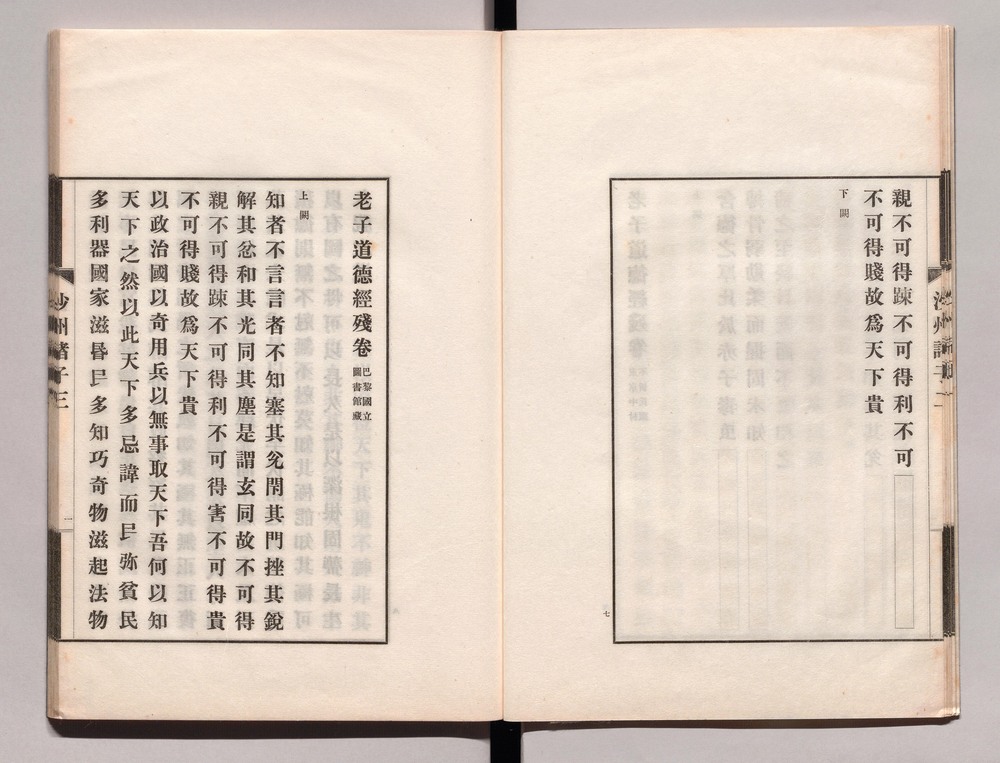 親不可得踈不可得利不可
不可得賤故爲天下貴
下闕
七
老子道德經殘卷 巴黎國立圖書館藏
上闕
知者不言言者不知塞其兌閇其門挫其銳
解其忿和其光同其塵是謂玄同故不可得
親不可得踈不可得利不可得害不可得貴
不可得賤故爲天下貴
以政治國以奇用兵以無事取天下吾何以知
天下之然以此天下多忌諱而民弥貧民
多利器國家滋昬民多知巧奇物滋起法物
沙州諸子三
一